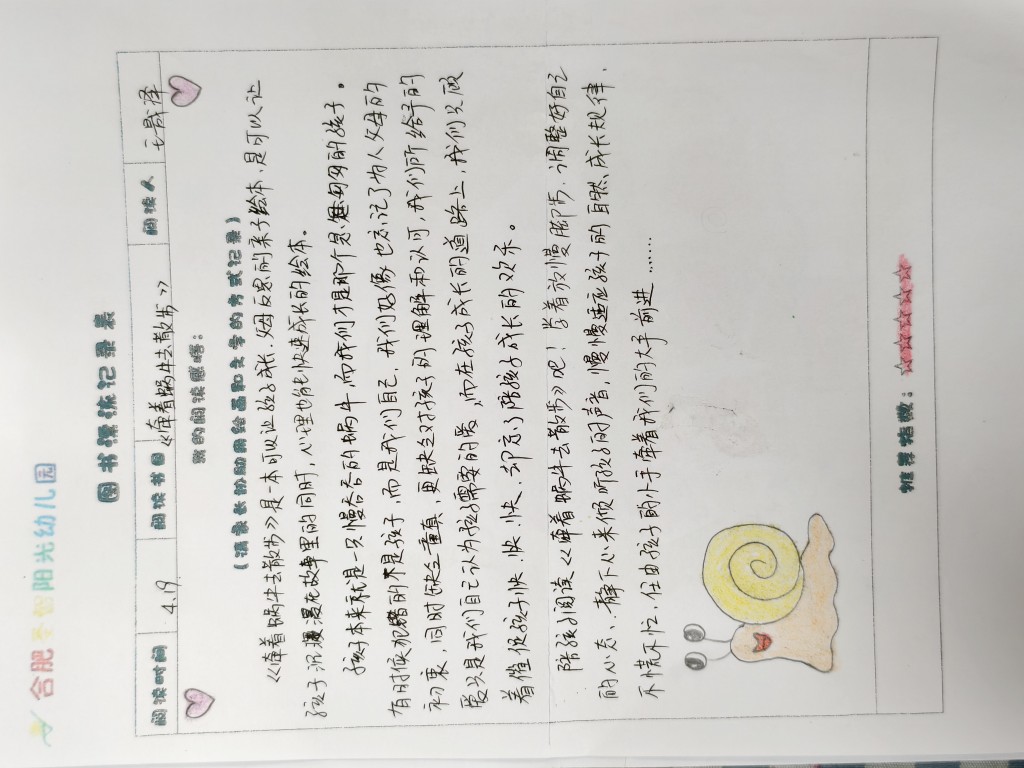 合肥圣智阳光幼儿园
图书漂流记录表
阅读时间 4.19 阅读书目 《牵着蜗牛去散步》 阅读人 王晟泽
我的阅读感悟:
(请家长协助用绘画和文字的方式记录)
《牵着蜗牛去散步》是一本可以让孩子成长、父母反思的亲子绘本,是可以让
孩子沉浸在故事里的同时,心理也能快速成长的绘本。
孩子本来就是一只慢吞吞的蜗牛,而我们才是那个急匆匆的孩子。
有时候犯错的不是孩子,而是我们自己,我们好像也忘记了为人父母的
初衷,同时缺乏童真,更缺乏对孩子的理解和认可,我们所给予的
爱只是我们自己认为孩子需要的爱,而在孩子成长的道路上,我们只顾
着催促孩子快、快、快,却忘了陪孩子成长的欢乐。
陪孩子阅读《牵着蜗牛去散步》吧!学着放慢脚步,调整好自己
的心态、静下心来倾听孩子的声音,慢慢适应孩子的自然成长规律,
不慌不忙,任由孩子的小手牵着我们的大手前进……
推荐指数:☆☆☆☆☆